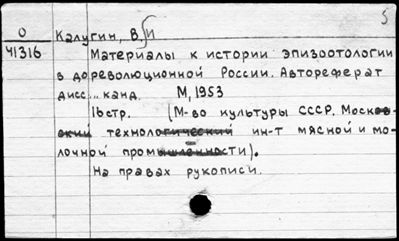 5
О
41316
Калугин, В.И
Материалы к истории эпизоотологии
в дореволюционной России. Автореферат
дисс... канд. М, 1953
16стр. (М-во культуры СССР. Москов-
ский технологический ин-т мясной и мо-
лочной промышленности).
На правах рукописи.